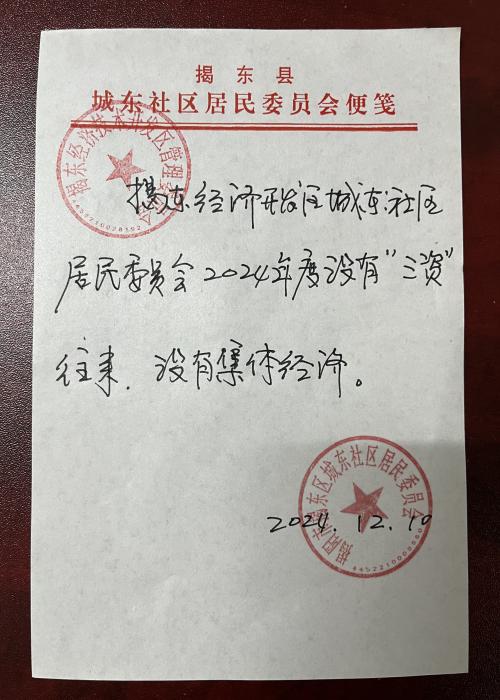 揭东县
城东社区居民委员会便笺
揭东经济技术开发区管理委员会
4452210028592
揭东经济开发区城东社区
居民委员会2024年度没有"三资"
往来，没有集体经济。
揭阳市揭东区城东社区居民委员会
2024.12.10